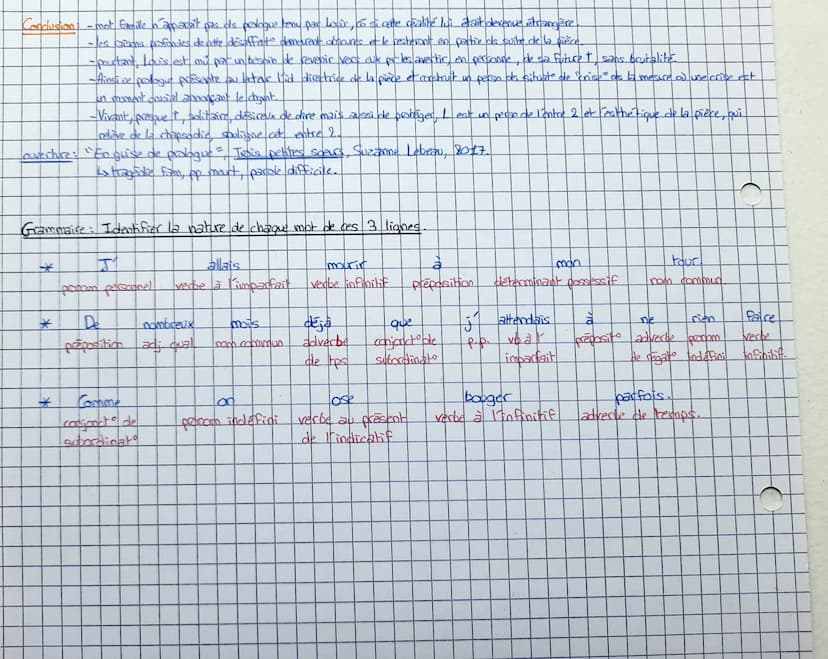 Conclusion: - mot famille n'apparaît pas ds prologue tenu par Louis, cô si cette réalité lui était devenue étrangère.
- les raisons profondes de cette désaffect° demeurent obscures et le resteront en partie ds suite de la pièce.
- pourtant, Louis est mû par un besoin de revenir vers eux pr les avertir, en personne, de sa future †, sans brutalité.
- Ainsi ce prologue présente au lecteur l'id directrice de la pièce et construit un perso ds situat° de "crise" ds la mesure où une crise est
un moment crucial annonçant le chgnt.
- Vivant, presque †, solitaire, désireux de dire mais aussi de protéger, L est un perso de l'entre 2 et l'esthétique de la pièce, qui
relève de la rhapsodie, souligne cet entre 2.
ouverture: "En guise de prologue", Trois petites sœurs, Suzanne Lebeau, 2017.
↳ tragédie fam, mort, parole difficile.
Grammaire: Identifier la nature de chaque mot de ces 3 lignes.
* J' allais mourir à mon tour
pronom personnel verbe à l'imparfait verbe infinitif préposition déterminant possessif nom commun.
* De nombreux mois déjà que j' attendais à ne rien faire
préposition adj qual nom commun adverbe conjonct° de p.p. vb à l' préposit° adverbe pronom verbe
de tps subordinat° imparfait de négat° indéfini infinitif.
* Comme on ose bouger parfois.
conjonct° de pronom indéfini verbe au présent verbe à l'infinitif adverbe de temps.
subordinat° de l'indicatif